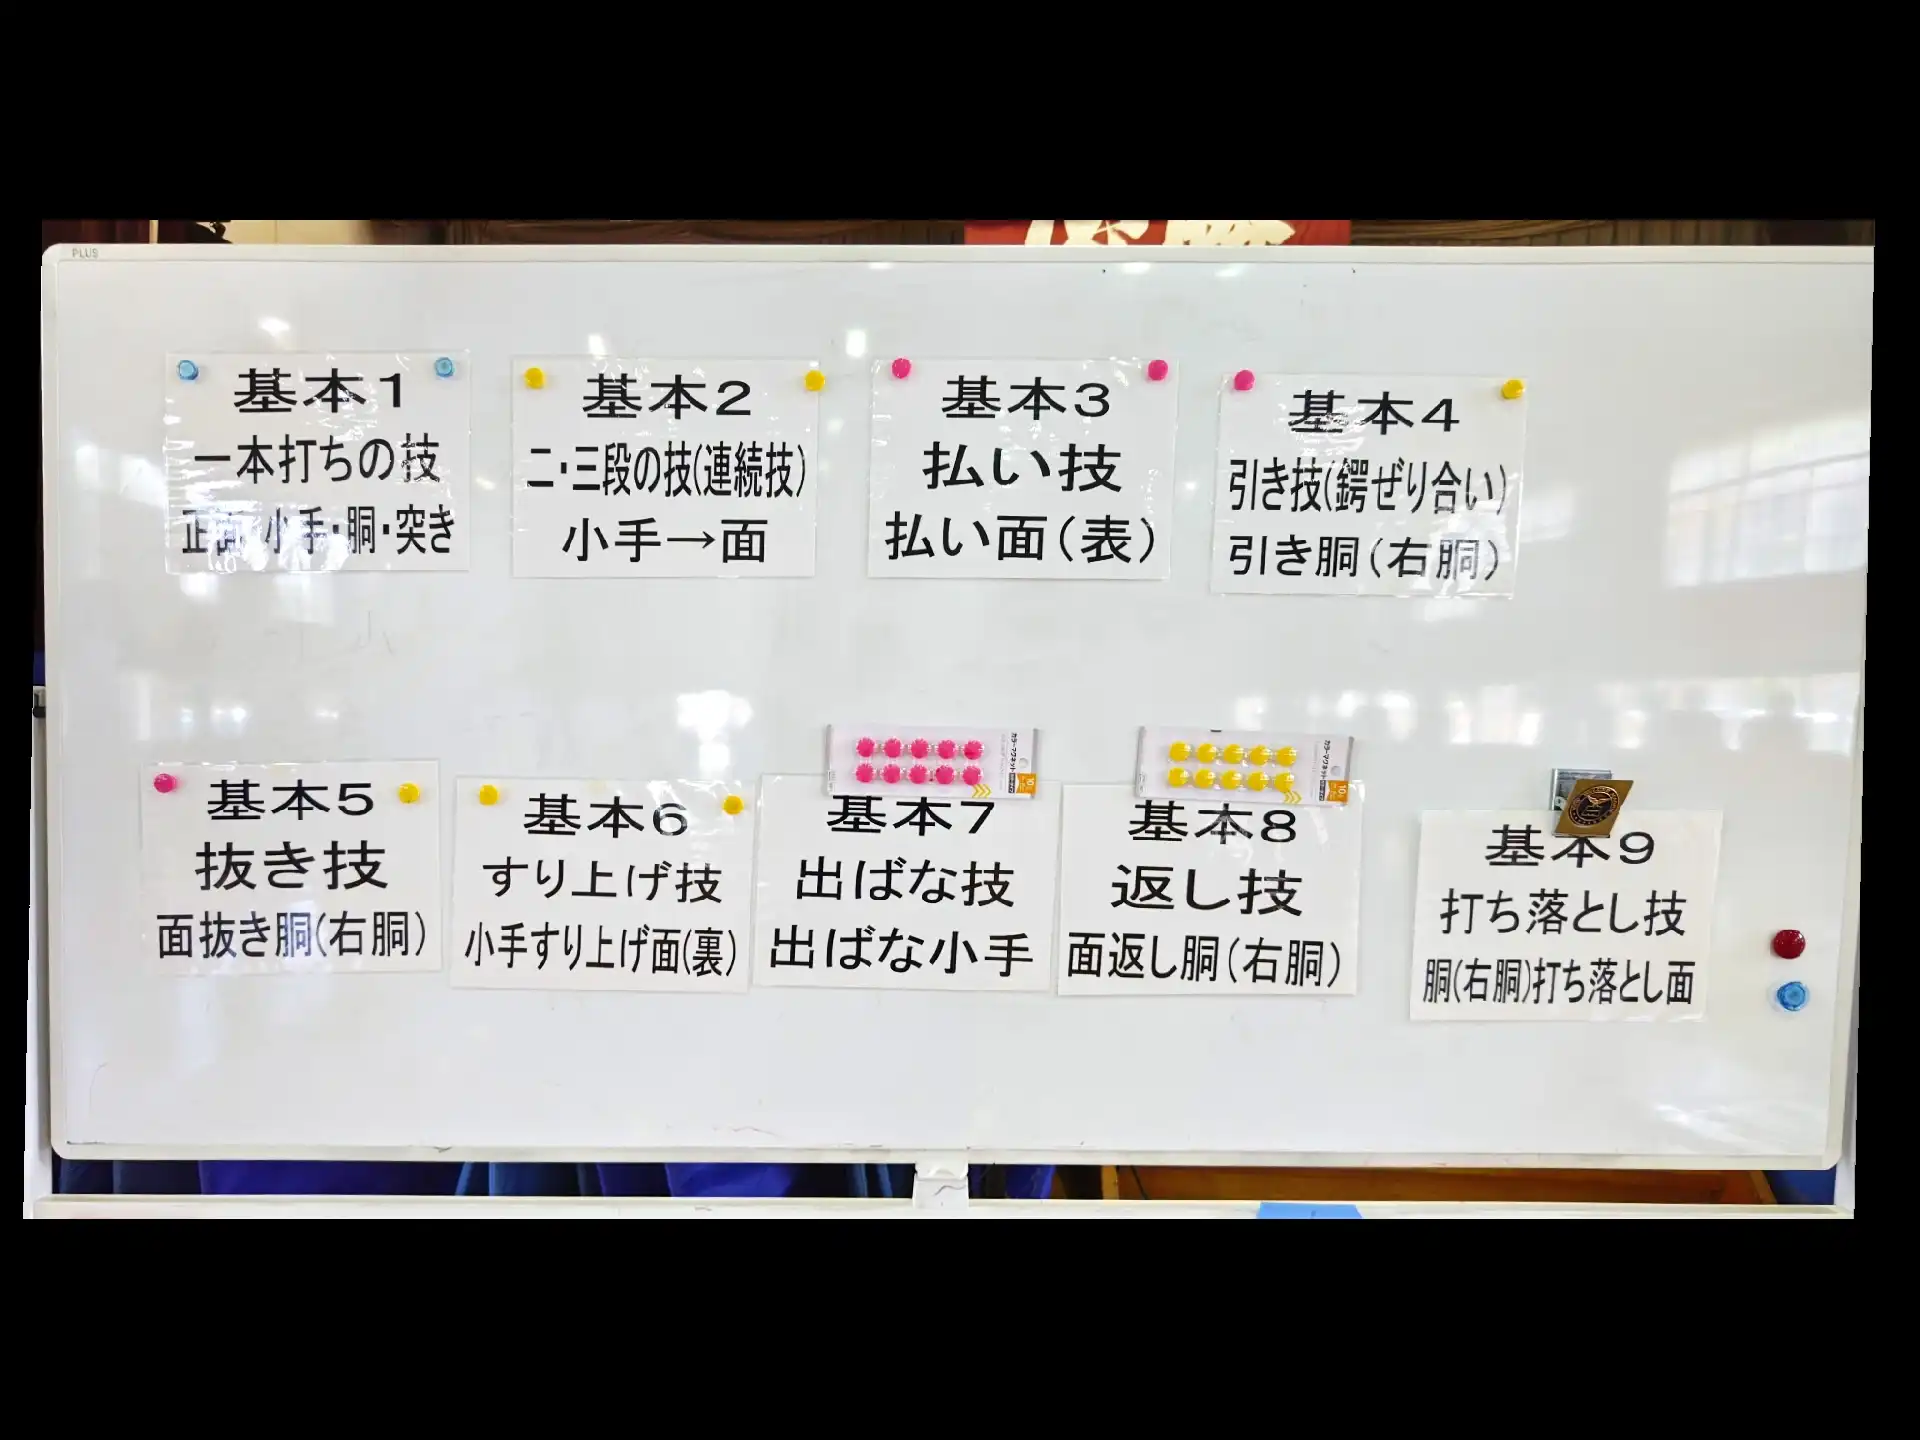 PLUS
基本1
一本打ちの技
正面・小手・胴・突き
基本2
二・三段の技(連続技)
小手→面
基本3
払い技
払い面(表)
基本4
引き技(鍔ぜり合い)
引き胴(右胴)
基本5
抜き技
面抜き胴(右胴)
基本6
すり上げ技
小手すり上げ面(裏)
基本7
出ばな技
出ばな小手
基本8
返し技
面返し胴(右胴)
基本9
打ち落とし技
胴(右胴)打ち落とし面
カラーマグネット
カラーマグネット